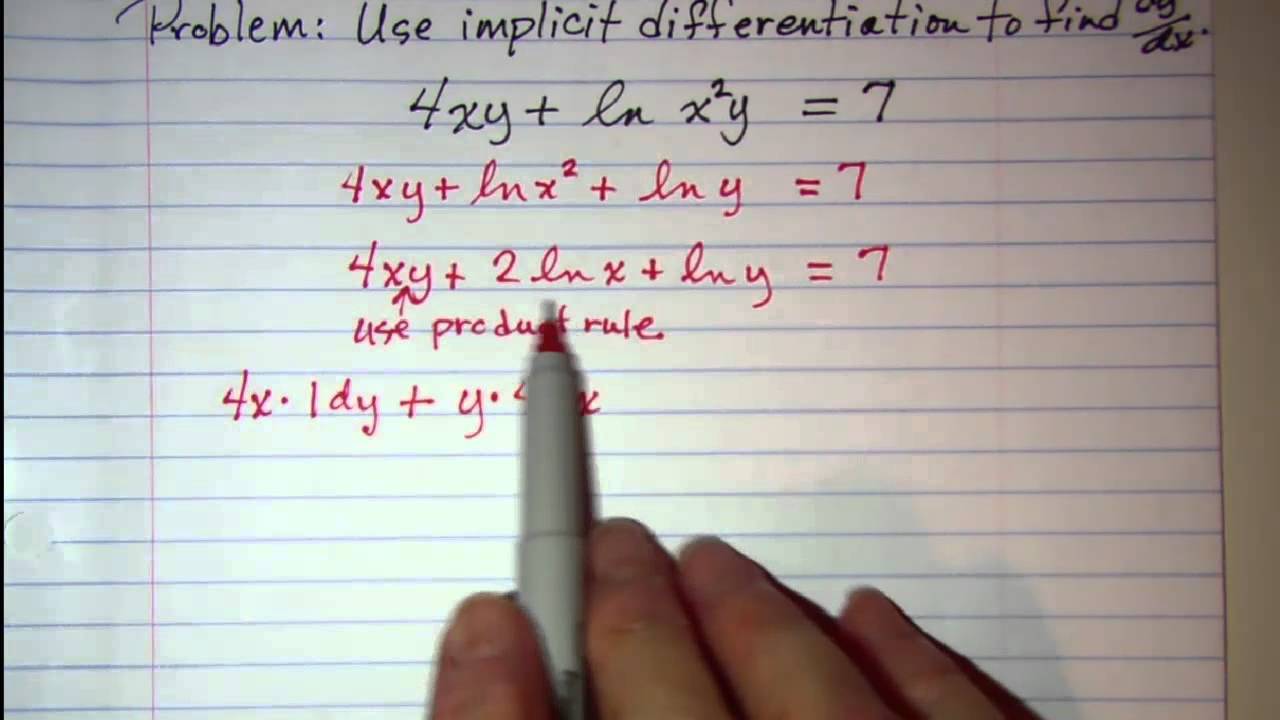 Problem: Use implicit differentiation to find dy/dx.
4xy + ln x²y = 7
4xy + ln x² + ln y = 7
4xy + 2 ln x + ln y = 7
use product rule.
4x · 1dy + y ·